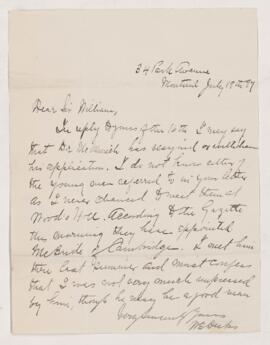 34 Park Avenue
Montreal July 19th 97
Dear Sir William,
In reply to yours of the 16th I may say
that Dr. has resigned or withdrawn
his application. I do not know either of
the young men referred to in your letter
as I never chanced to meet them at
Woods Hole. According to the Gazette
this morning they have appointed
McBride of Cambridge. I met him
there last summer and must confess
that I was not very much impressed
by him, though he may be a good man
Very sincerely yours